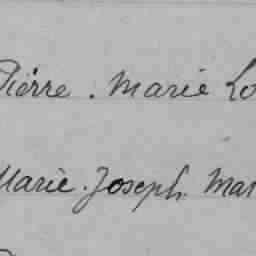 Pierre. Marie Lo
Marie. Joseph. Mar